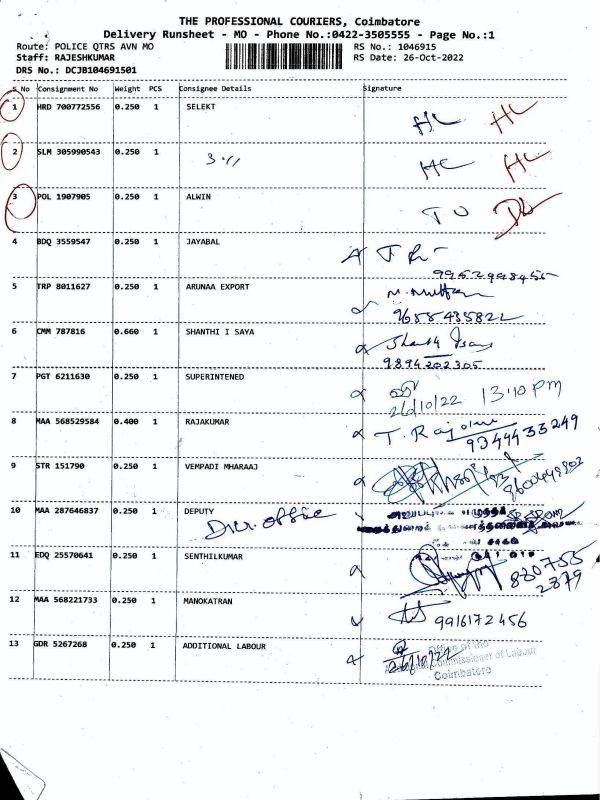 THE PROFESSIONAL COURIERS, Coimbatore
Delivery Runsheet - MO - Phone No.:0422-3505555 - Page No.:1
Route: POLICE QTRS AVN MO RS No.: 1046915
Staff: RAJESHKUMAR RS Date: 26-Oct-2022
DRS No.: DCJB104691501
S No Consignment No Weight PCS Consignee Details Signature
1 HRD 700772556 0.250 1 SELEKT HL HL
2 SLM 305990543 0.250 1 HL HL
3 POL 1907905 0.250 1 ALWIN
4 BDQ 3559547 0.250 1 JAYABAL
5 TRP 8011627 0.250 1 ARUNAA EXPORT
9655435822
6 CMM 787816 0.660 1 SHANTHI I SAYA
9894202305
7 PGT 6211630 0.250 1 SUPERINTENED
26/10/22 13:10 pm
8 MAA 568529584 0.400 1 RAJAKUMAR T. Raj
9344433249
9 STR 151790 0.250 1 VEMPADI MHARAAJ
10 MAA 287646837 0.250 1 DEPUTY
11 EDQ 25570641 0.250 1 SENTHILKUMAR
12 MAA 568221733 0.250 1 MANOKATRAN
9916172456
13 GDR 5267268 0.250 1 ADDITIONAL LABOUR
Office of the
Commissioner of Labour
26/10/22
Coimbatore